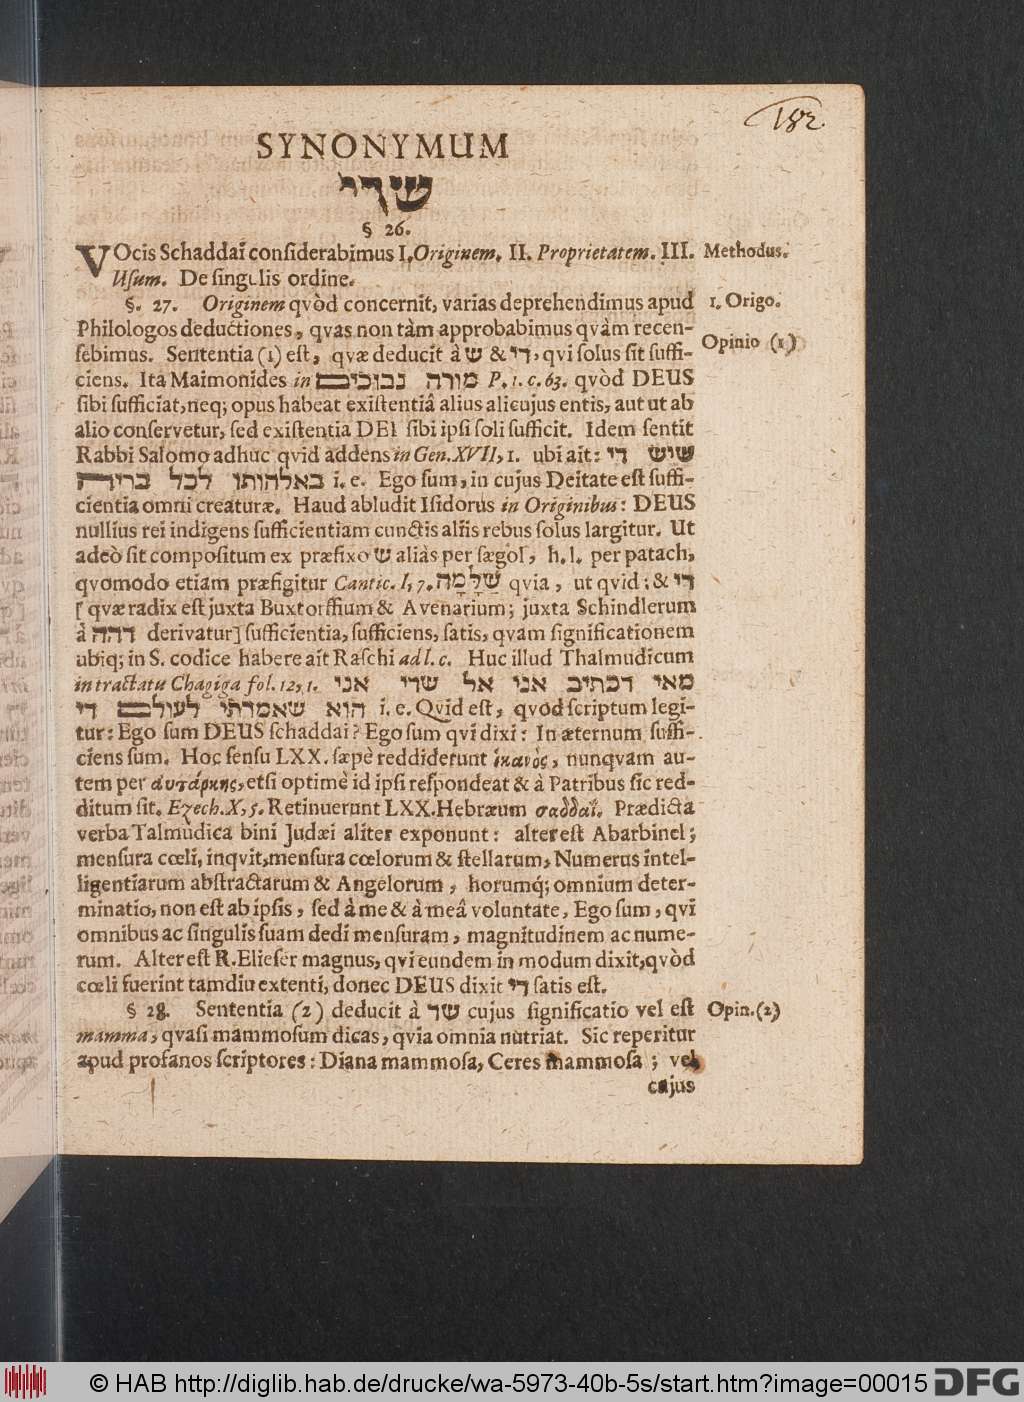 182.
SYNONYMUM
שדי
§ 26.
VOcis Schaddai conſiderabimus I. Originem. II. Proprietatem. III. Methodus.
Uſum. De ſingulis ordine.
§. 27. Originem qvòd concernit, varias deprehendimus apud 1. Origo.
Philologos deductiones, qvas non tàm approbabimus qvàm recen-
ſebimus. Sententia (1) eſt, qvæ deducit à ש & די, qvi ſolus ſit ſuffi- Opinio (1)
ciens. Ita Maimonides in מורה נבוכים P. 1. c. 63. qvòd DEUS
ſibi ſufficiat, neq; opus habeat exiſtentiâ alius alicujus entis, aut ut ab
alio conſervetur, ſed exiſtentia DEI ſibi ipſi ſoli ſufficit. Idem ſentit
Rabbi Salomo adhuc qvid addens in Gen. XVII, 1. ubi ait: שיש די
באלהותו לכל בריה i. e. Ego ſum, in cujus Deitate eſt ſuffi-
cientia omni creaturæ. Haud abludit Iſidorus in Originibus: DEUS
nullius rei indigens ſufficientiam cunctis aliis rebus ſolus largitur. Ut
adeò ſit compoſitum ex præfixo ש aliàs per ſægol, h. l. per patach,
qvomodo etiam præfigitur Cantic. I, 7. שַׁלָּמָה qvia, ut qvid: & די
[qvæ radix eſt juxta Buxtorffium & Avenarium; juxta Schindlerum
à דהה derivatur] ſufficientia, ſufficiens, ſatis, qvam ſignificationem
ubiq; in S. codice habere ait Raſchi ad l. c. Huc illud Thalmudicum
in tractatu Chagiga fol. 12, 1. מאי דכתיב אני אל שדי אני
הוא שאמרתי לעולם די i. e. Qvid eſt, qvod ſcriptum legi-
tur: Ego ſum DEUS ſchaddai? Ego ſum qvi dixi: In æternum ſuffi-
ciens ſum. Hoc ſenſu LXX. ſæpè reddiderunt ἱκανὸς, nunqvam au-
tem per ἀυτάρκης, etſi optimè id ipſi reſpondeat & à Patribus ſic red-
ditum ſit. Ezech. X, 5. Retinuerunt LXX. Hebræum σαδδαΐ. Prædicta
verba Talmudica bini Judæi aliter exponunt: alter eſt Abarbinel;
menſura cœli, inqvit, menſura cœlorum & ſtellarum, Numerus intel-
ligentiarum abſtractarum & Angelorum, horumq́; omnium deter-
minatio, non eſt ab ipſis, ſed à me & à meâ voluntate, Ego ſum, qvi
omnibus ac ſingulis ſuam dedi menſuram, magnitudinem ac nume-
rum. Alter eſt R. Elieſer magnus, qvi eundem in modum dixit, qvòd
cœli fuerint tamdiu extenti, donec DEUS dixit די ſatis eſt.
§ 28. Sententia (2) deducit à שד cujus ſignificatio vel eſt Opin. (2)
mamma, qvaſi mammoſum dicas, qvia omnia nutriat. Sic reperitur
apud profanos ſcriptores: Diana mammoſa, Ceres mammoſa; vel
cujus
© HAB http://diglib.hab.de/drucke/wa-5973-40b-5s/start.htm?image=00015 DFG